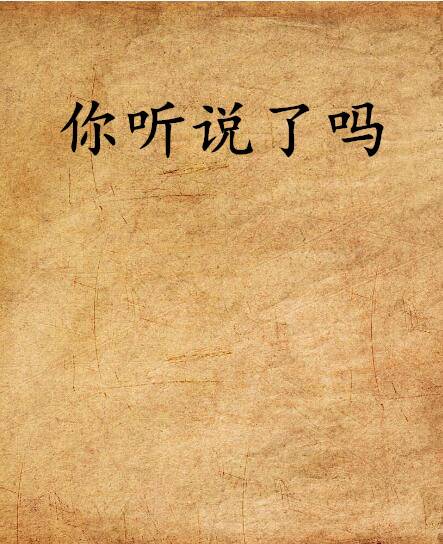 你听说了吗